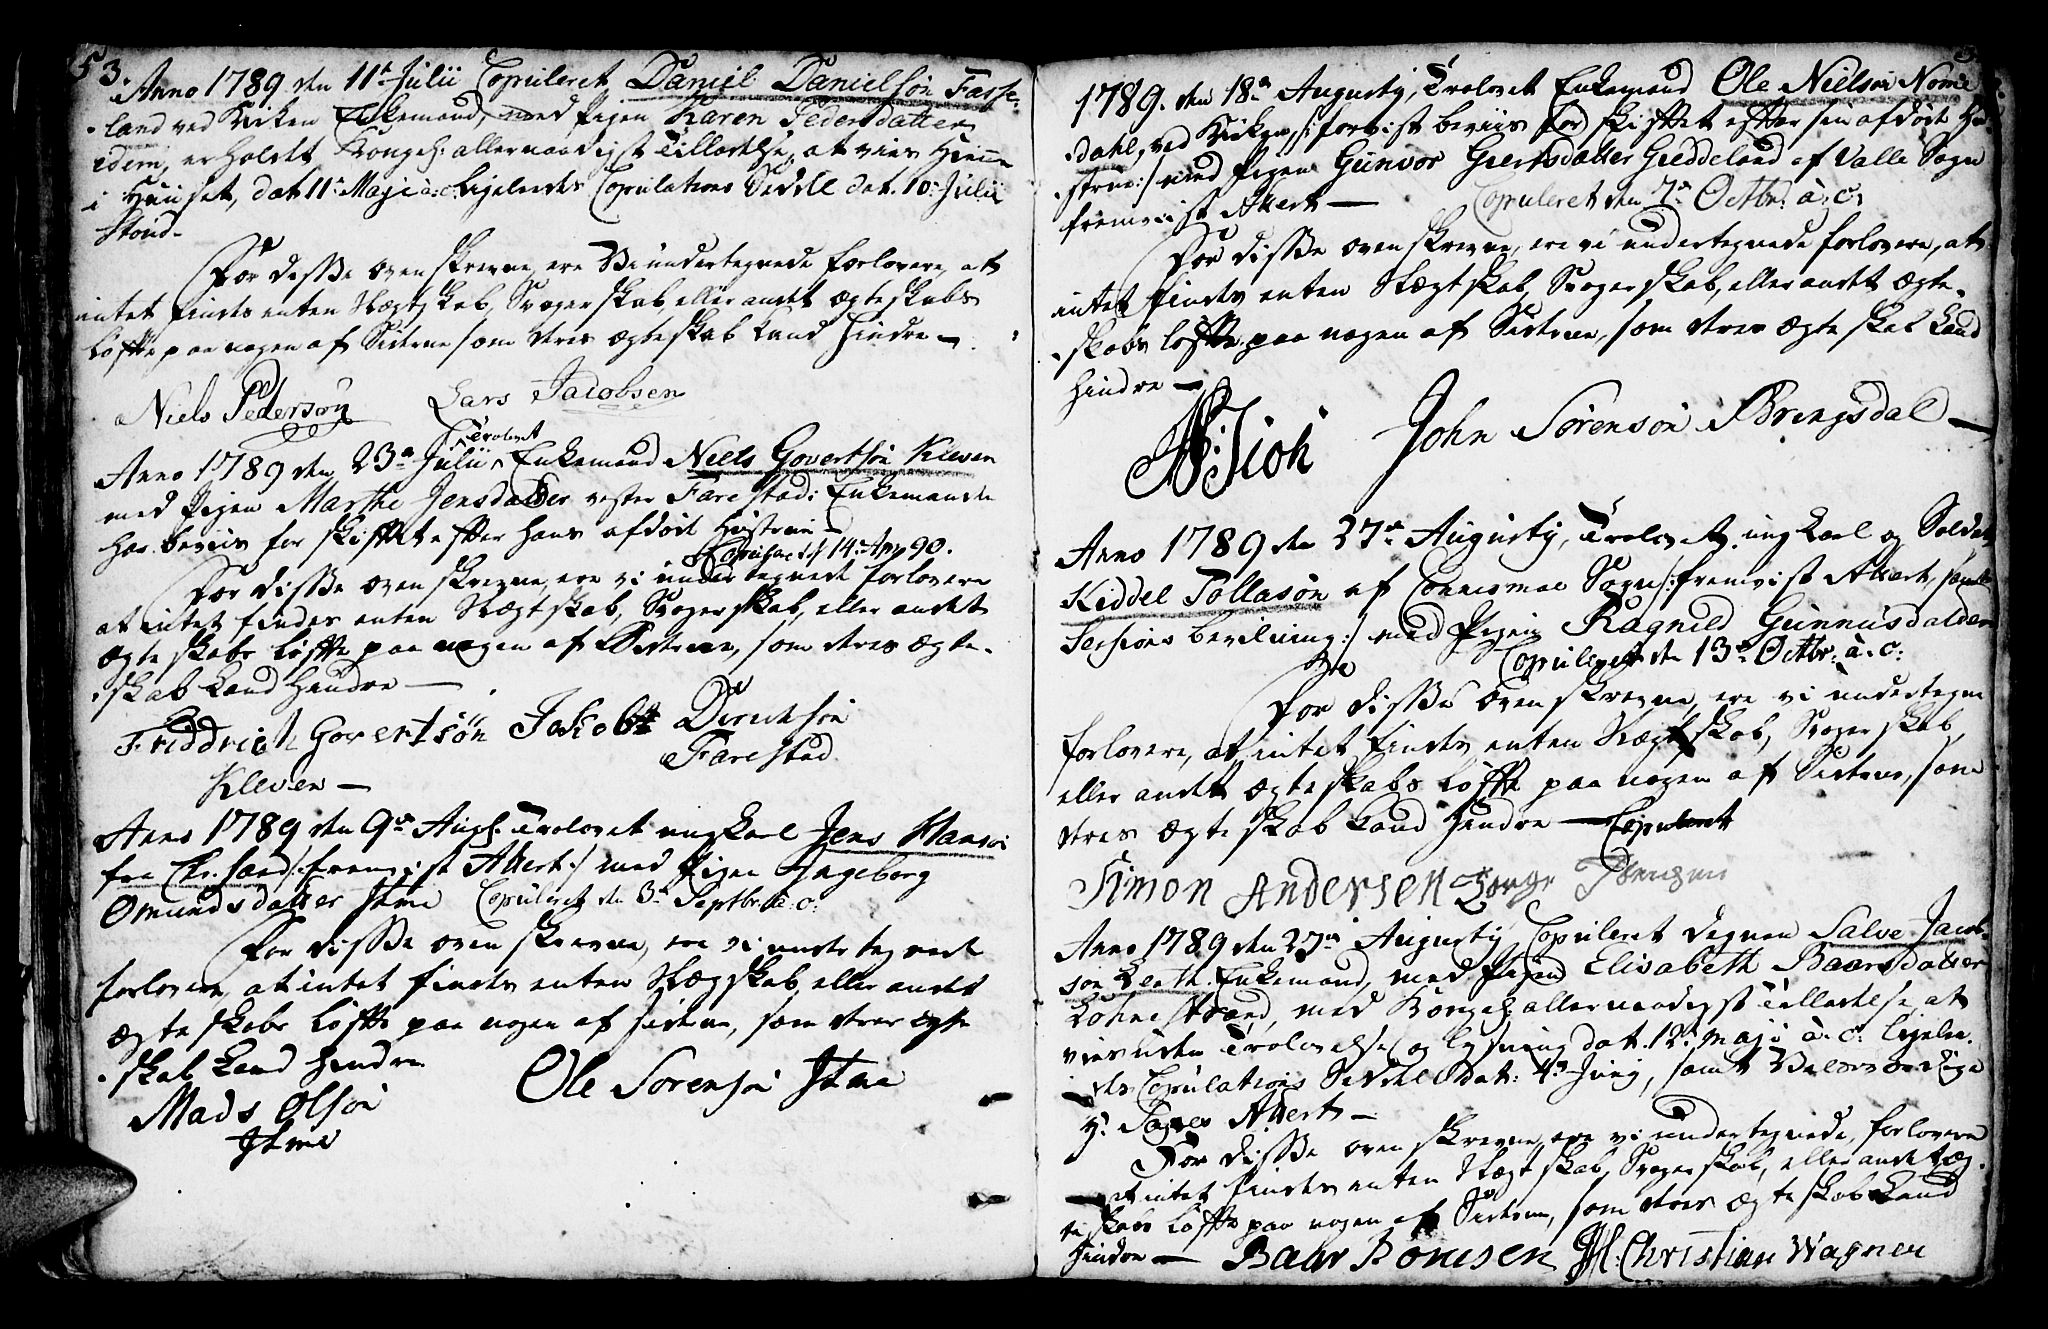 53.
Anno 1789 den 11t Julii Copuleret Daniel Danielsøn Farse-
land ved Kirken Enkemand, med Pigen Karen Pedersdatter
idem, erholdt Kongel: allernaadigst Tilladelse, at vies hiemme
i Huuset, dat 11t Maji a: c: ligeledes Copulations Seddel dat. 10: Julii
For disse ovenskrevne, ere Vi undertegnede forlovere, at
intet findes enten Slægtskab, Svogerskab, eller andet Ægteskabs
Løfte paa nogen af Siderne som deres Ægteskab kand hindre —
Niels Pedersøn Lars Jacobsen
Anno 1789 den 23de Julii, Trolovet Enkemand Niels Govertsøn Kleven
med Pigen Marthe Jensdatter vester Farestad: Enkemanden
har beviis for Skiftet efter hans afdøde Hustrue —
Copuleret d: 14 Apr 90.
For disse ovenskrevne, ere vi undertegnede forlovere
at intet findes enten Slægtskab, Svogerskab, eller andet
Ægteskabs Løfte paa nogen af Siderne, som deres Ægte-
skab kand hindre —
Friddrich Govertsøn Jakob Dirichsøn
Kleven — Farestad
Anno 1789 den 9de Aug. Trolovet ungkarl Jens Hansøn
fra Chr.sand /: fremvist Attest :/ med Pigen Ingeborg
Omundsdatter Ime Copuleret den 3de Septbr. a: c:
For disse ovenskrevne, ere vi undertegnede
forlovere, at intet findes enten Slægskab, eller andet
Ægteskabs Løfte paa nogen af siderne, som deres Ægte
skab kand hindre
Mads Olsøn Ole Sørensøn Ime
Ime
1789. den 18de Augusty, Trolovet Enkemand Ole Nielsøn Nome-
dahl, ved Kirken /: forvist beviis for skiftet efter sin afdøde Hu-
strue :/ med Pigen Gunvor Giertsdatter Gieddeland af Valle Sogn
fremviist Attest — Copuleret den 7de Octbr: a: c:
For disse ovenskrevne, ere vi undertegnede forlovere, at
intet findes enten Slægtskab, Svogerskab, eller andet Ægte-
skabs løfte paa nogen af Siderne, som deres Ægteskab kand
hindre —
John Sørensøn Bringsdal —
Anno 1789 den 27de Augusty, Trolovet ungkarl og Soldat
Kiddel Tollasøn af Connismoe Sogn /: fremvist Attest, samt
Sessions bevilning :/ med Pigen Ragnild Gunnusdatter
Copuleret den 13de Octbr: a: c:
For disse ovenskrevne, ere vi undertegne
forlovere, at intet findes, enten Slægtskab, Svogerskab,
eller andet Ægteskabs Løfte paa nogen af Siderne, som
deres Ægteskab kand hindre — Copuleret
Simon Andersen
Anno 1789 den 27de Augusty, Copuleret Degnen Salve Jacob-
søn Enkemand, med Pigen Elisabeth Baarsdatter
Lohnestrand, med Kongel: allernaadigst Tilladelse, at
vies uden Trolovelse og Lysning dat. 12te Maji a: c: ligele-
des Copulations Seddel dat: 4de Junij, samt
Attest —
For disse ovenskrevne, ere vi undertegnede, forlovere
at intet findes enten Slægtskab, Svogerskab, eller andet Æg-
teskabs Løfte paa nogen af Siderne, som deres Ægteskab kand
hindre — Baar Tønnesen Christian Wagner